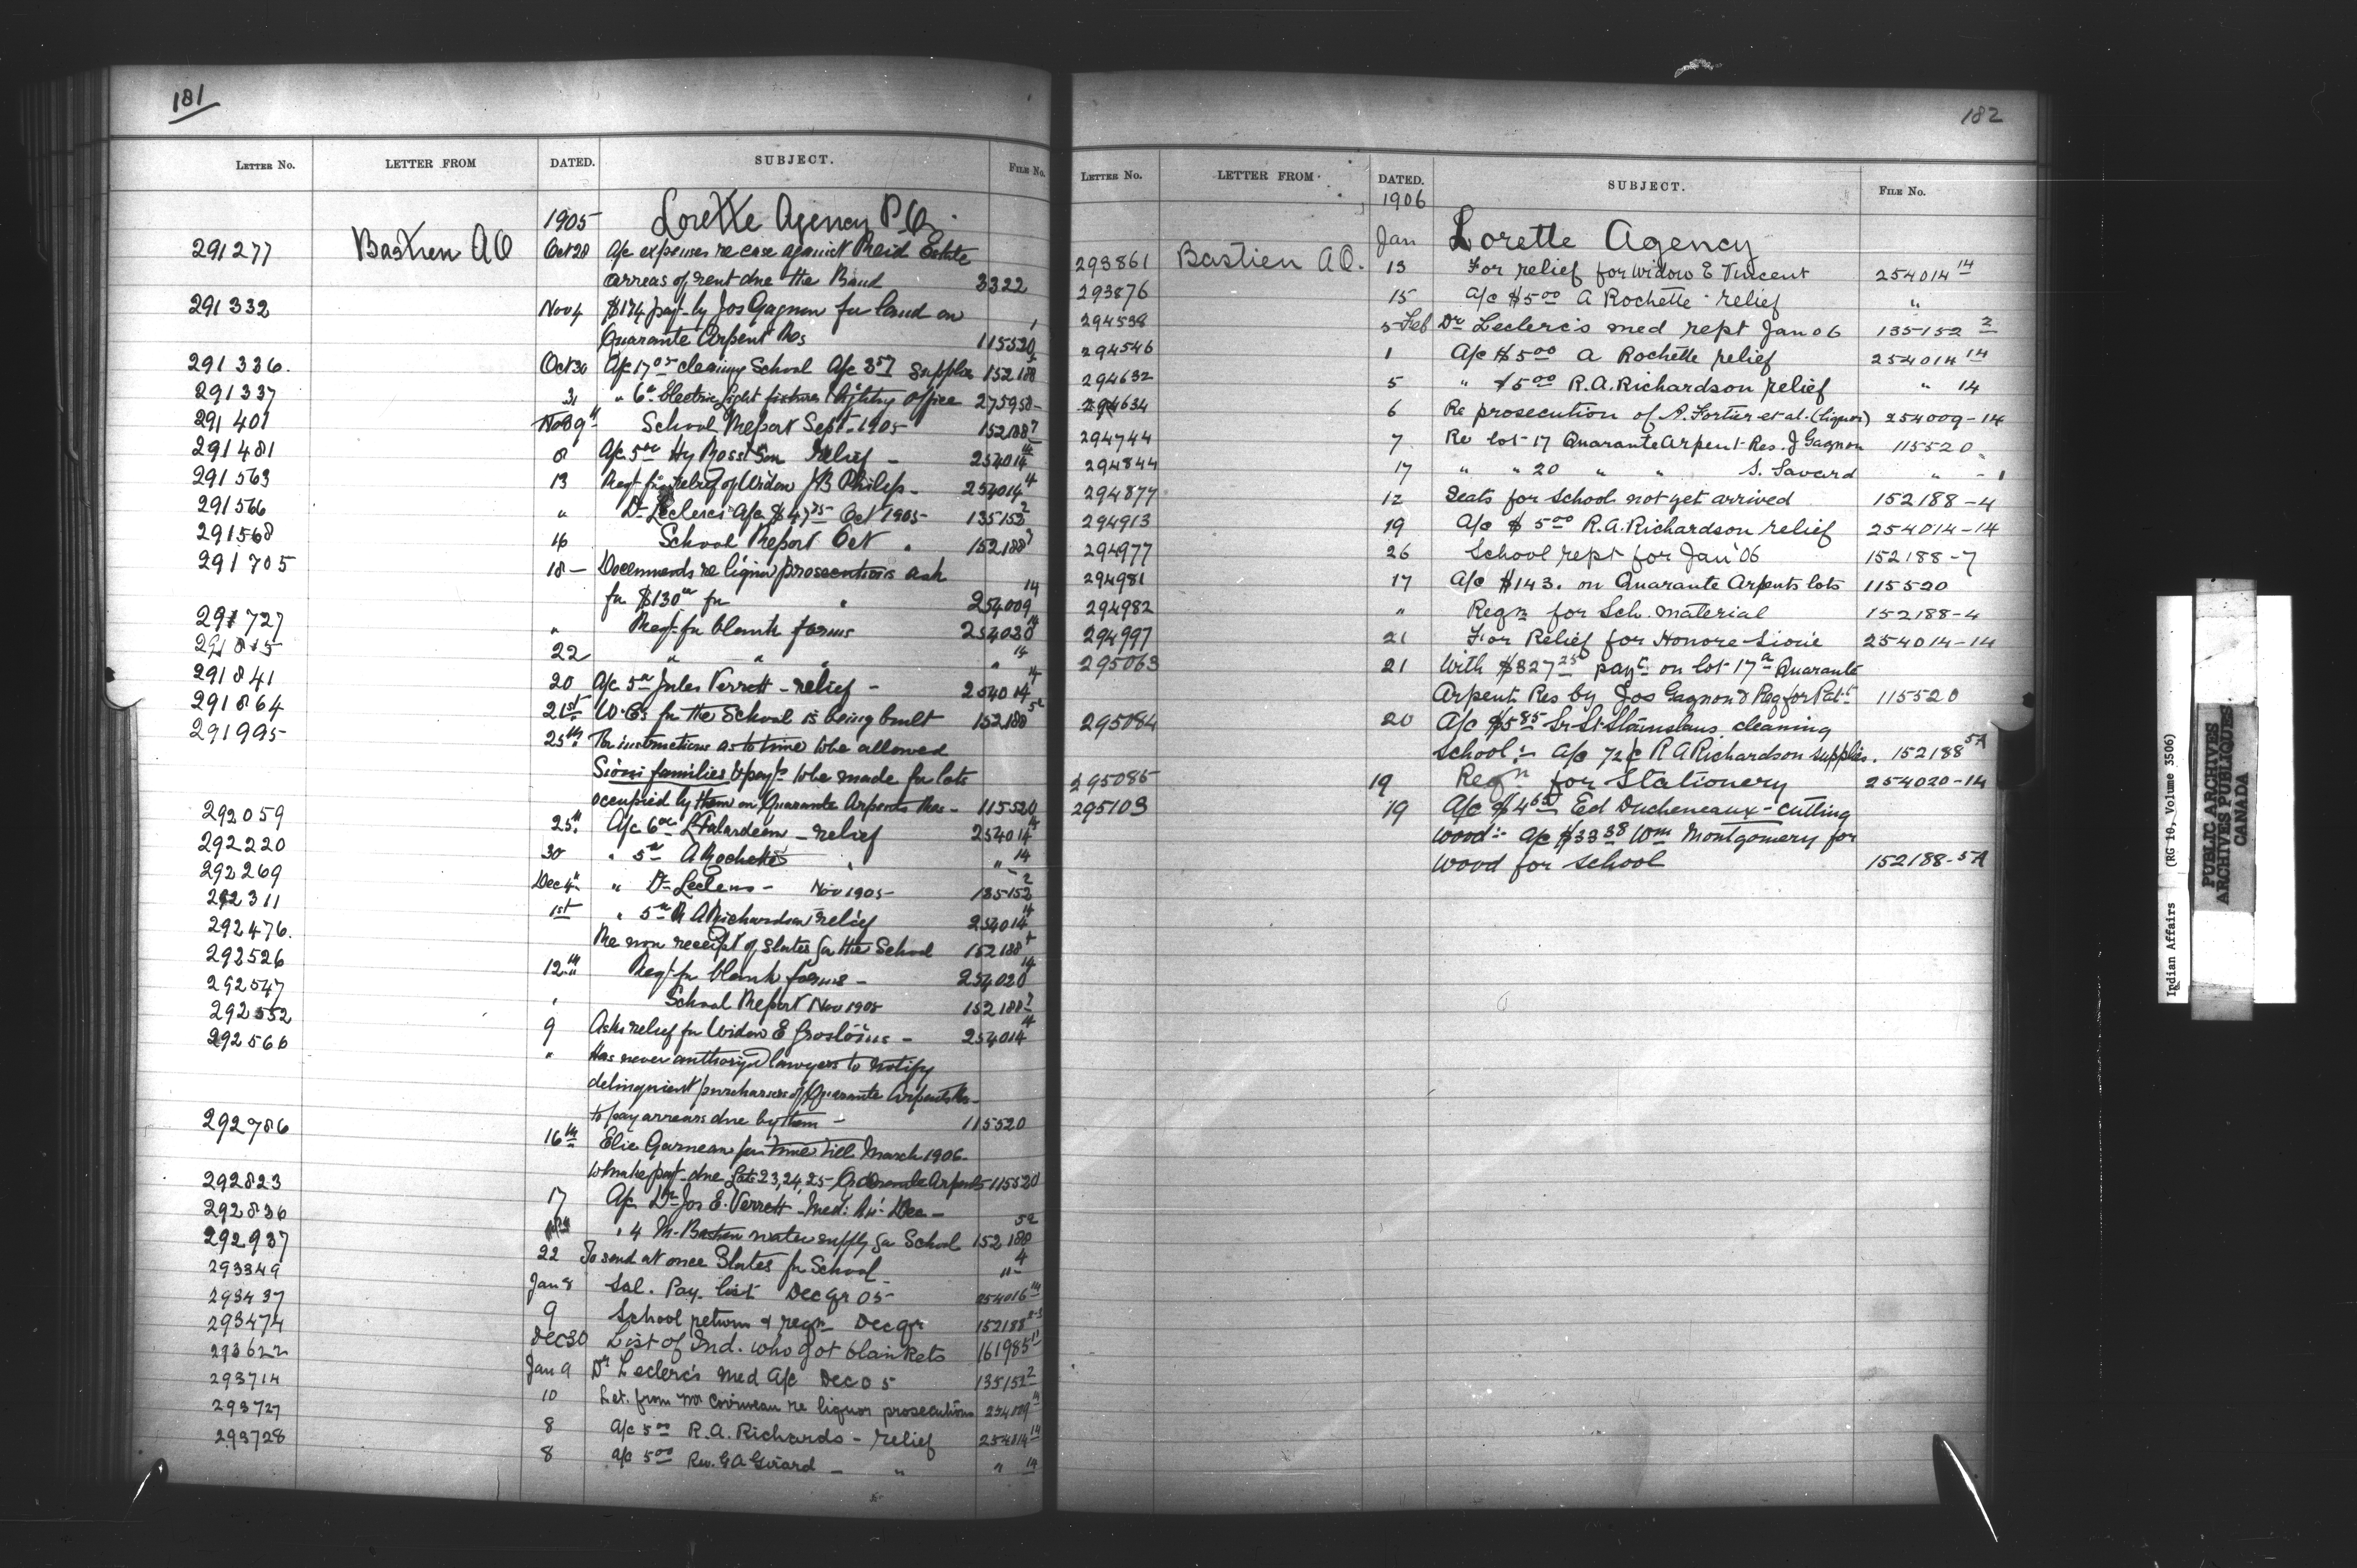 181
LETTER No. LETTER FROM DATED. SUBJECT. FILE No.
1905 Lorette Agency P.Q.
291277 Bastien A O Oct 28 A/c expenses re case against Reid Estate
arreas of rent due the Band 3322
291332 Nov 4 $174 payt by Jos Gagnon for land on
Quarante Arpent Res 115520 1
291336. Oct 30 A/c 17 cleaning School A/c 3 supplies 152188
291337 31 " 6 Electric Light fixtures lighting office 275950 -
291401 9 School Report Sept. 1905 152188 7
291481 8 A/c 5 Hy Ross Son relief - 254014 14
291563 13 Reqt for relief of Widow J B Philip - 254014
291566 " Dr Leclerc's A/c $47 75 Oct 1905 135152 2
291568 16 School Report Oct " 152188 7
291705 18 - Documents re liquor prosecutions ask
for $130 for " 254009 14
291727 " Reqt for blank forms 254020 14
22 " " " " 14
291841 20 A/c 5 Jules Verrett - relief - 254014 14
291864 21st W.C's for the School is being built 152188 5a
291995 25th For instructions as to time to be allowed
Sioui families & payt to be made for lots
occupied by them on Quarante Arpents Res - 115520
292059 25th A/c 6 L Falardeau - relief 254014 14
292220 30 " 5 A Rochette " " 14
292269 Dec 4 " Dr Leclerc - Nov 1905 - 135152 2
292311 1st " 5 R A Richardson relief 254014 14
292476. Re non receipt of slates for the School 152188 4
292526 12th Reqt for blank forms - 254020 14
292547 " School Report Nov 1905 152188 7
292552 9 Asks relief for Widow E Groslouis - 254014 14
292566 " Has never authorized lawyers to notify
delinquent purchasers of Quarante Arpents Res -
to pay arrears due by them - 115520
292786 16th Elie Garneau for time till March 1906 -
to make payt due Lots 23, 24, 25 Quarante Arpents 115520
292823 17 A/c Dr Jos E. Verrett - Med: Dec -
292836 " 4 M. Bastien water supply for School 152188 5a
292937 22 To send at once Slates for School " - 4
293349 Jan 8 Sal. Pay. list Dec qr 05 254016 14
293437 9 School return & reqn Dec qr 152188
293474 Dec 30 List of Ind. who got blankets 161985 11
293622 Jan 9 Dr Leclerc's med A/c Dec 05 135152 2
293714 10 Let. from Mr Corriveau re liquor prosecutions 254009 14
293727 8 A/c 5 00 R. A. Richards - relief 254014 14
293728 8 A/c 5 00 Rev. G A Girard - " " 14
182
LETTER No. LETTER FROM. DATED. SUBJECT. FILE No.
1906
Jan Lorette Agency
293861 Bastien A O. 13 For relief for Widow E Vincent 254014 14
293876 15 A/c $5 00 A Rochette - relief "
294538 5 Feb Dr Leclerc's med rept Jan 06 135152 2
294546 1 A/c $5 00 A Rochette relief 254014 14
294632 5 " $5 00 R. A. Richardson relief " 14
294634 6 Re prosecution of A. Fortier et al. (Liquor) 254009-14
294744 7 Re lot 17 Quarante Arpent Res. J Gagnon 115520
294844 17 " " 20 " " S. Savard " - 1
294877 12 Seats for School not yet arrived 152188-4
294913 19 A/c $5 00 R. A. Richardson relief 254014-14
294977 26 School rept for Jan '06 152188-7
294981 17 A/c $143. on Quarante Arpents lots 115520
294982 " Reqn for Sch. material 152188-4
294997 21 For Relief for Honore Sioui 254014-14
295063 21 With $327 25 payt on lot 17a Quarante
Arpent Res by Jos Gagnon & Req for Patt 115520
295084 20 A/c $5 85 Sr St Stanislaus cleaning
School:- A/c 72¢ R A Richardson supplies. 152188 5A
295085 19 Reqn for Stationery 254020-14
295103 19 A/c $4 65 Ed Ducheneaux - cutting
Wood:- A/c $33 38 Wm Montgomery for
Wood for School 152188-5A
Indian Affairs (RG 10, Volume 3506)
PUBLIC ARCHIVES
ARCHIVES PUBLIQUES
CANADA